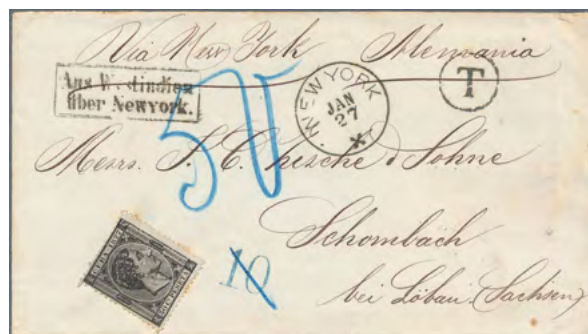 Via New York Alemania
Aus Westindien
über Newyork.
NEW YORK
JAN
27
T
Messrs. & Sohne
Schombach
10
bei Löbau (Sachsen)